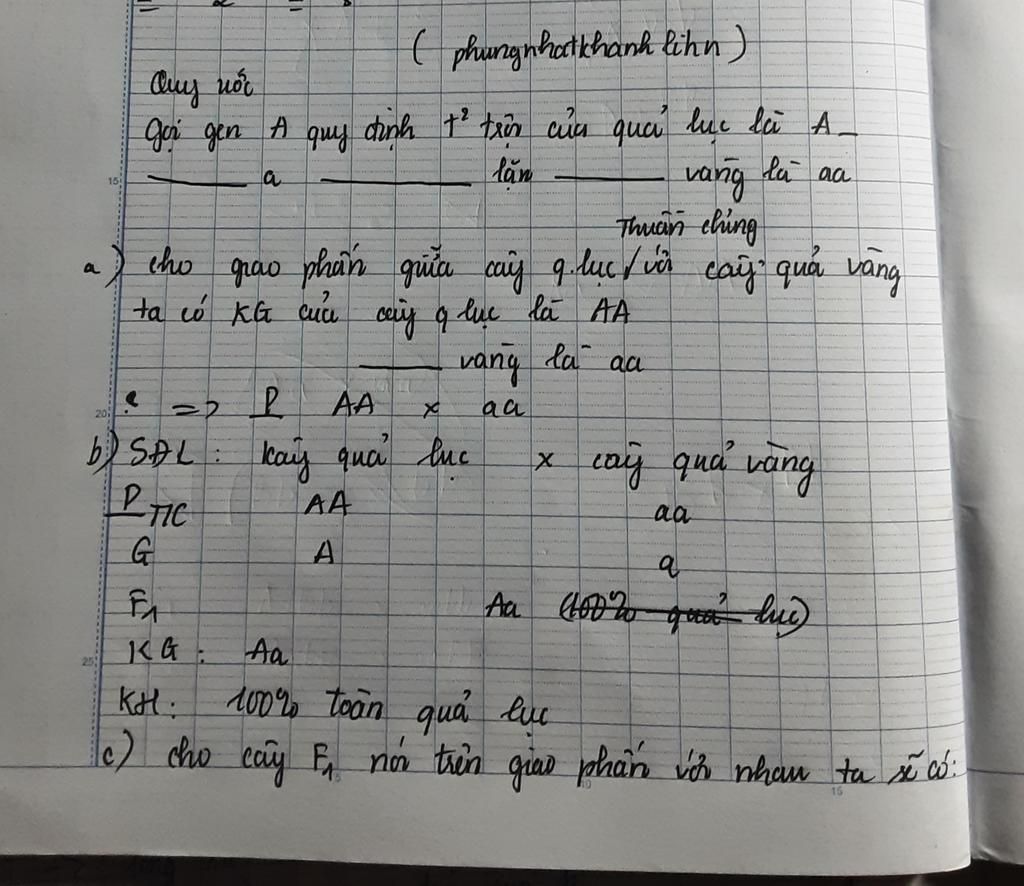 ( phungnhatkhanhlihn )
Quy ước
Gọi gen A quy định t² trội của quả lục là A_
a lặn vàng là aa
Thuần chủng
a) cho giao phấn giữa cây q.lục / với cây quả vàng
ta có KG của cây q lục là AA
vàng là aa
=> P AA x aa
b) SĐL : Kây quả lục x cây quả vàng
P T/C AA aa
G A a
F1 Aa (100% quả lục)
KG : Aa
KH : 100% toàn quả lục
c) cho cây F1 nói trên giao phấn với nhau ta sẽ có: